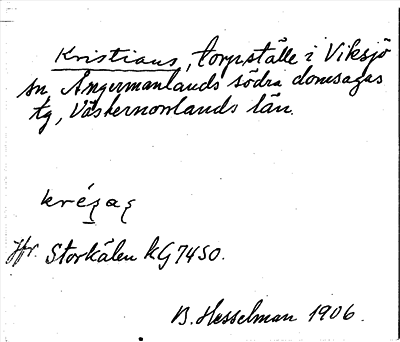 Kristians, torpställe i Viksjö
sn, Ångermanlands södra domsagas
tg, Västernorrlands län.
Jfr. Storkälen KG 7450.
B. Hesselman 1906.